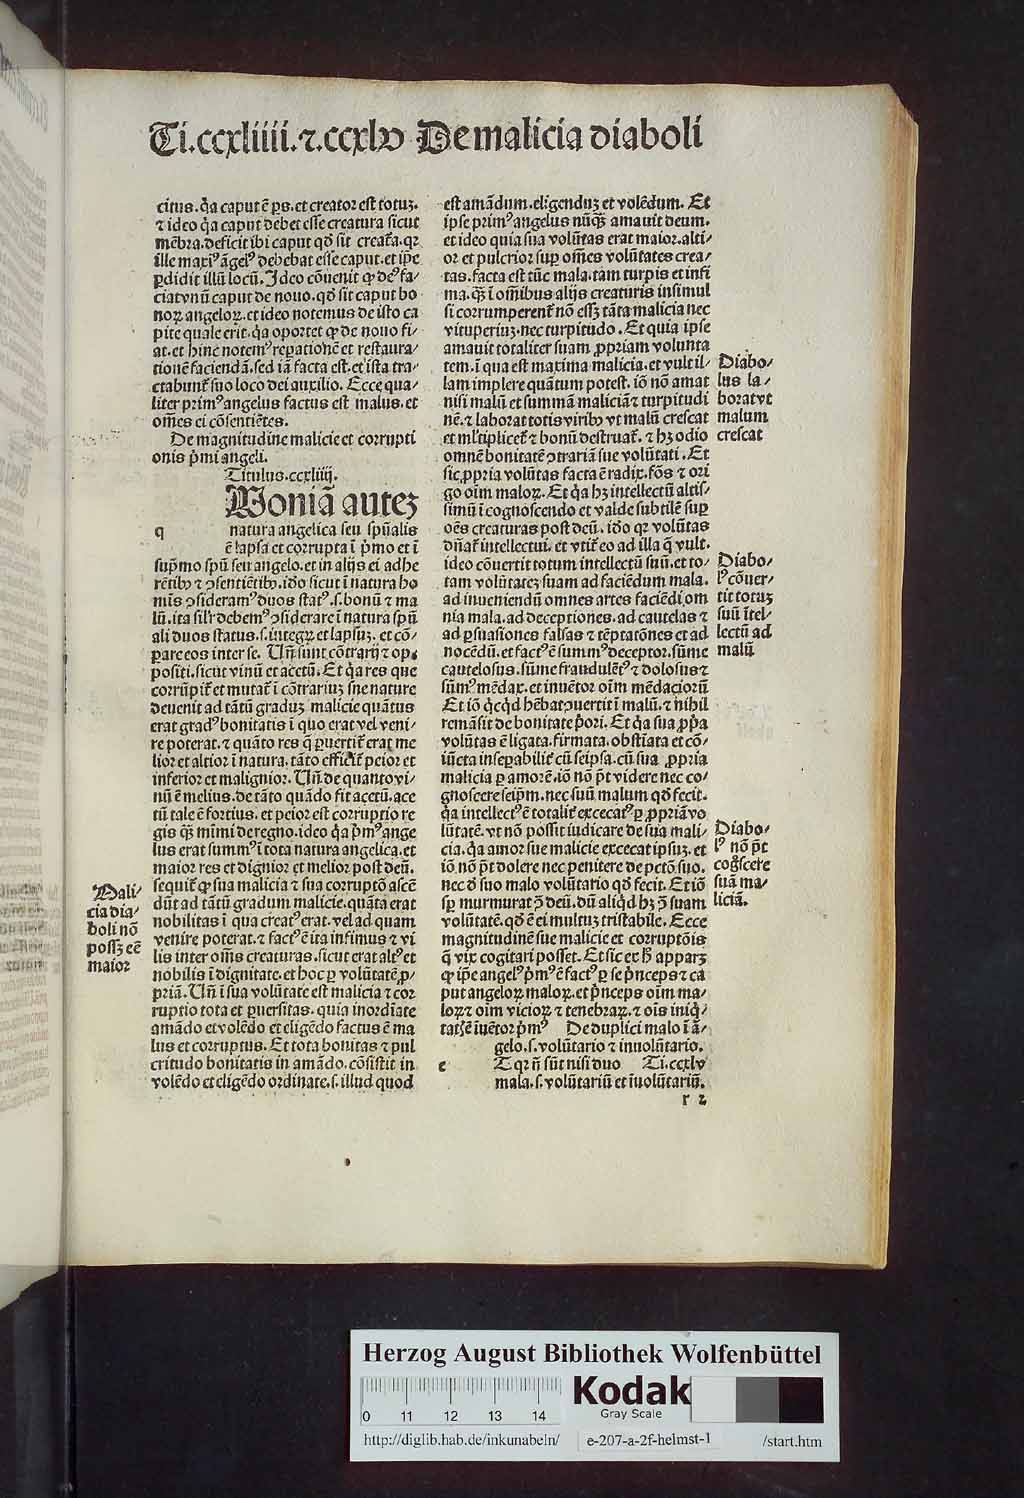 Ti.ccxliiii.⁊.ccxlv De malicia diaboli
citus.q̃a caput ē p̄s.et creator est totuʒ.
⁊ ideo q̃a caput debet esse creatura sicut
mēbra.deficit ibi caput qd̄ sit creat̃a.qꝛ
ille maxiꝰ āgelꝰ debebat esse caput.et ip̄e
ꝑdidit illū locū.Ideo cōuenit ꝙ deꝰ fa/
ciat vnū caput de nouo.qd̄ sit caput bo
noꝝ angeloꝝ.et ideo notemus de isto ca
pite quale erit.q̃a oportet ꝙ de nouo fi/
at.et hinc notemꝰ reꝑationē et restaura/
tionē faciendā.sed iā facta est.et ista tra/
ctabunt̃ suo loco dei auxilio. Ecce qua/
liter primꝰ angelus factus est malus.et
om̄es ei cōsentiētes.
De magnitudine malicie et corrupti
onis p̃mi angeli.
Titulus.ccxliiij.
Woniā auteʒ
q natura angelica seu spūalis
ē lapsa et corrupta ī p̃mo et ī
sup̃mo spū seu angelo.et in alijs ei adhe
rētibꝰ ⁊ ɔsentiētibꝰ.iđo sicut ī natura ho
mīs ɔsideramꝰ duos statꝰ.s.bonū ⁊ ma
lū.ita sil̃r debemꝰ ɔsiderare ī natura spū
ali duos status.s.integꝝ et lapsuʒ.et cō/
parare eos inter se. Uñ sunt cōtrarij ⁊ op
positi.sicut vinū et acetū. Et q̃a res que
corrūpit̃ et mutat̃ ī cōtrariuʒ sue nature
deuenit ad tātū graduʒ malicie quātus
erat gradꝰ bonitatis ī quo erat vel veni/
re poterat.⁊ quāto res q̄ ꝑuertit̃ erat me
lior et altior ī natura.tāto efficit̃ peior et
inferior et malignior. Uñ de quanto vi/
nū ē melius.de tāto quādo fit acetū.ace
tū tale ē fortius.et peior est corruptio re
gis q̄ʒ mīmi de regno.ideo q̃a p̃mꝰ ange
lus erat summꝰ ī tota natura angelica.et
maior res et dignior et melior post deū.
sequit̃ ꝙ sua malicia ⁊ sua corruptō ascē
dūt ad tātū gradum malicie.quāta erat
nobilitas ī qua creatꝰ erat.vel ad quam
venire poterat.⁊ factꝰ ē ita infimus ⁊ vi
lis inter om̄s creaturas.sicut erat altꝰ et
nobilis ī dignitate.et hoc ꝑ volūtatē ꝓ/
priā. Uñ ī sua volūtate est malicia ⁊ cor
ruptio tota et ꝑuersitas.quia inordīate
amādo et volēdo et eligēdo factus ē ma
lus et corruptus. Et tota bonitas ⁊ pul
critudo bonitatis in amādo.cōsistit in
volēdo et eligēdo ordinate.s.illud quod
Mali/
cia dia/
boli nō
possʒ eē
maior
est amādum.eligenduʒ et volēdum. Et
ipse primꝰ angelus nūq̄ʒ amauit deum.
et ideo quia sua volūtas erat maior.alti/
or et pulcrior suꝑ om̄es volūtates crea/
tas.facta est tūc mala.tam turpis et infi
ma.q̄ʒ ī om̄ibus alijs creaturis insimul
si corrumperent̃ nō essʒ tāta malicia nec
vituperiuʒ.nec turpitudo. Et quia ipse
amauit totaliter suam ꝓpriam volunta
tem.ī qua est maxima malicia.et vult il/
lam implere quātum potest.iō nō amat
nisi malū et summā maliciā ⁊ turpitudi
nē.⁊ laborat totis viribꝰ vt malū crescat
et ml̃tiplicet̃ ⁊ bonū destruat̃.⁊ hʒ odio
omnē bonitatē ɔtrariā sue volūtati. Et
sic ꝓpria volūtas facta ē radix.fōs ⁊ ori
go oīm maloꝝ. Et q̃a hʒ intellectū altis/
simū ī cognoscendo et valde subtilē suꝑ
oēs creaturas post deū.iđo qꝛ volūtas
dñat̃ intellectui.et vtit̃ eo ad illa q̄ vult.
ideo cōuertit totum intellectū suū.et to/
tam volūtateʒ suam ad faciēdum mala.
ad inueniendū omnes artes faciēdi om
nia mala.ad deceptiones.ad cautelas ⁊
ad ꝑsuasiones falsas ⁊ tēptatōnes et ad
nocēdū.et factꝰ ē summꝰ deceptor.sūme
cautelosus.sūme fraudulētꝰ ⁊ dolosus ⁊
sūmꝰ mēdax.et inuētor oīm mēdacioꝝ
Et iō q̃cq̃d hēbat ɔuertit ī malū.⁊ nihil
remāsit de bonitate p̃ori. Et q̃a sua ꝓp̃a
volūtas ē ligata.firmata.obstīata et cō/
iūcta inseꝑabilit̃ cū seipsa.cū sua ꝓpria
malicia ꝑ amorē.iō nō p̄t videre nec co/
gnoscere seip̄m.nec suū malum qd̄ fecit.
q̃a intellectꝰ ē totalit̃ excecatꝰ ꝑ ꝓpriā vo
lūtatē.vt nō possit iudicare de sua mali/
cia.q̃a amor sue malicie excecat ipsuʒ.et
iō nō p̄t dolere nec penitere de pctō suo.
nec đ suo malo volūtario qd̄ fecit. Et iō
sꝑ murmurat ɔ̄ deū.dū aliq̃d hʒ ɔ̄ suam
volūtatē.qd̄ ē ei multuʒ tristabile. Ecce
magnitudinē sue malicie et corruptōis
q̄ vix cogitari posset. Et sic ex h̄ apparʒ
ꝙ ip̄e angelꝰ p̃mꝰ ē factꝰ ꝑ se p̃nceps ⁊ ca
put angeloꝝ maloꝝ.et p̃nceps oīm ma/
loꝝ ⁊ oīm vicioꝝ ⁊ tenebraꝝ.⁊ oīs iniq̃/
tatʒ ē īuētor p̃mꝰ De duplici malo ī ā/
gelo.s.volūtario ⁊ inuolūtario.
e T qꝛ ñ sūt nisi duo Ti.ccxlv
mala.s.volūtariū et īuolūtariū.
r 2
Diabo/
lus la/
borat vt
malum
crescat
Diabo/
lꝰ cōuer/
tit totuʒ
suū ītel/
lectū ad
malū
Diabo/
lꝰ nō p̄t
cog̃scere
suā ma/
liciā.
Herzog August Bibliothek Wolfenbüttel
Kodak
Gray Scale
0 11 12 13 14
http://diglib.hab.de/inkunabeln/ e-207-a-2f-helmst-1 /start.htm